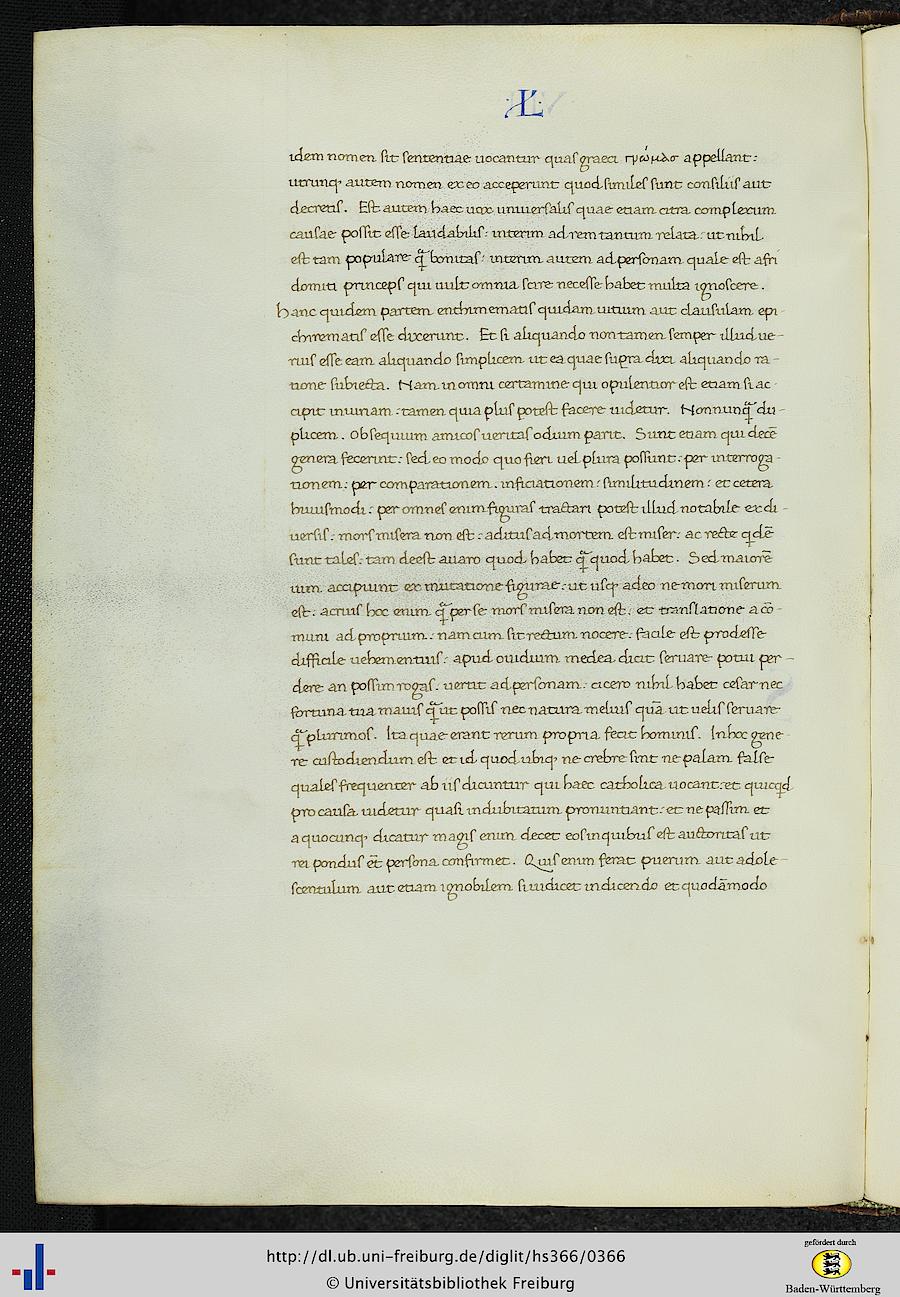 ·L·
idem nomen sit sententiae uocantur quas graeci γνώμασ appellant:
utrunq; autem nomen ex eo acceperunt quod similes sunt consiliis aut
decretis. Est autem haec uox uniuersalis quae etiam citra complexum
causae possit esse laudabilis: interim ad rem tantum relata: ut nihil
est tam populare q̃ bonitas: interim autem ad personam quale est afri
domiti princeps qui uult omnia scire necesse habet multa ignoscere.
hanc quidem partem enthimematis quidam uitium aut clausulam epi-
chirematis esse dixerunt. Et si aliquando non tamen semper illud ue-
rius esse eam aliquando simplicem ut ea quae supra dixi aliquando ra-
tione subiecta. Nam in omni certamine qui opulentior est etiam si ac-
cipit iniuriam: tamen quia plus potest facere uidetur. Nonnunq̃ du-
plicem. Obsequium amicos ueritas odium parit. Sunt etiam qui decē
genera fecerint: sed eo modo quo fieri uel plura possunt: per interroga-
tionem: per comparationem. inficiationem: similitudinem: et cetera
huiusmodi: per omnes enim figuras tractari potest illud notabile ex di-
uersis: mors misera non est: aditus ad mortem est miser: ac recte q̇dē
sunt tales: tam deest auaro quod habet q̃ quod habet. Sed maiorē
uim accipiunt ex mutatione figurae: ut usq; adeo ne mori miserum
est: acrius hoc enim q̃ per se mors misera non est: et translatione a cō-
muni ad proprium: nam cum sit rectum nocere: facile est prodesse
difficile uehementius: apud ouidium medea dicit seruare potui per-
dere an possim rogas. uertit ad personam: cicero nihil habet cesar nec
fortuna tua maius q̃ ut possis nec natura melius quā ut uelis seruare
q̃ plurimos. Ita quae erant rerum propria fecit hominis. In hoc gene-
re custodiendum est et id quod ubiq; ne crebre sint ne palam false
quales frequenter ab iis dicuntur qui haec catholica uocant: et quicq̇d
pro causa uidetur quasi indubitatum pronuntiant: et ne passim et
a quocunq; dicatur magis enim decet eos in quibus est auctoritas ut
rei pondus et̄ persona confirmet. Quis enim ferat puerum aut adole-
scentulum aut etiam ignobilem si iudicet in dicendo et quodāmodo
http://dl.ub.uni-freiburg.de/diglit/hs366/0366
© Universitätsbibliothek Freiburg
gefördert durch
Baden-Württemberg